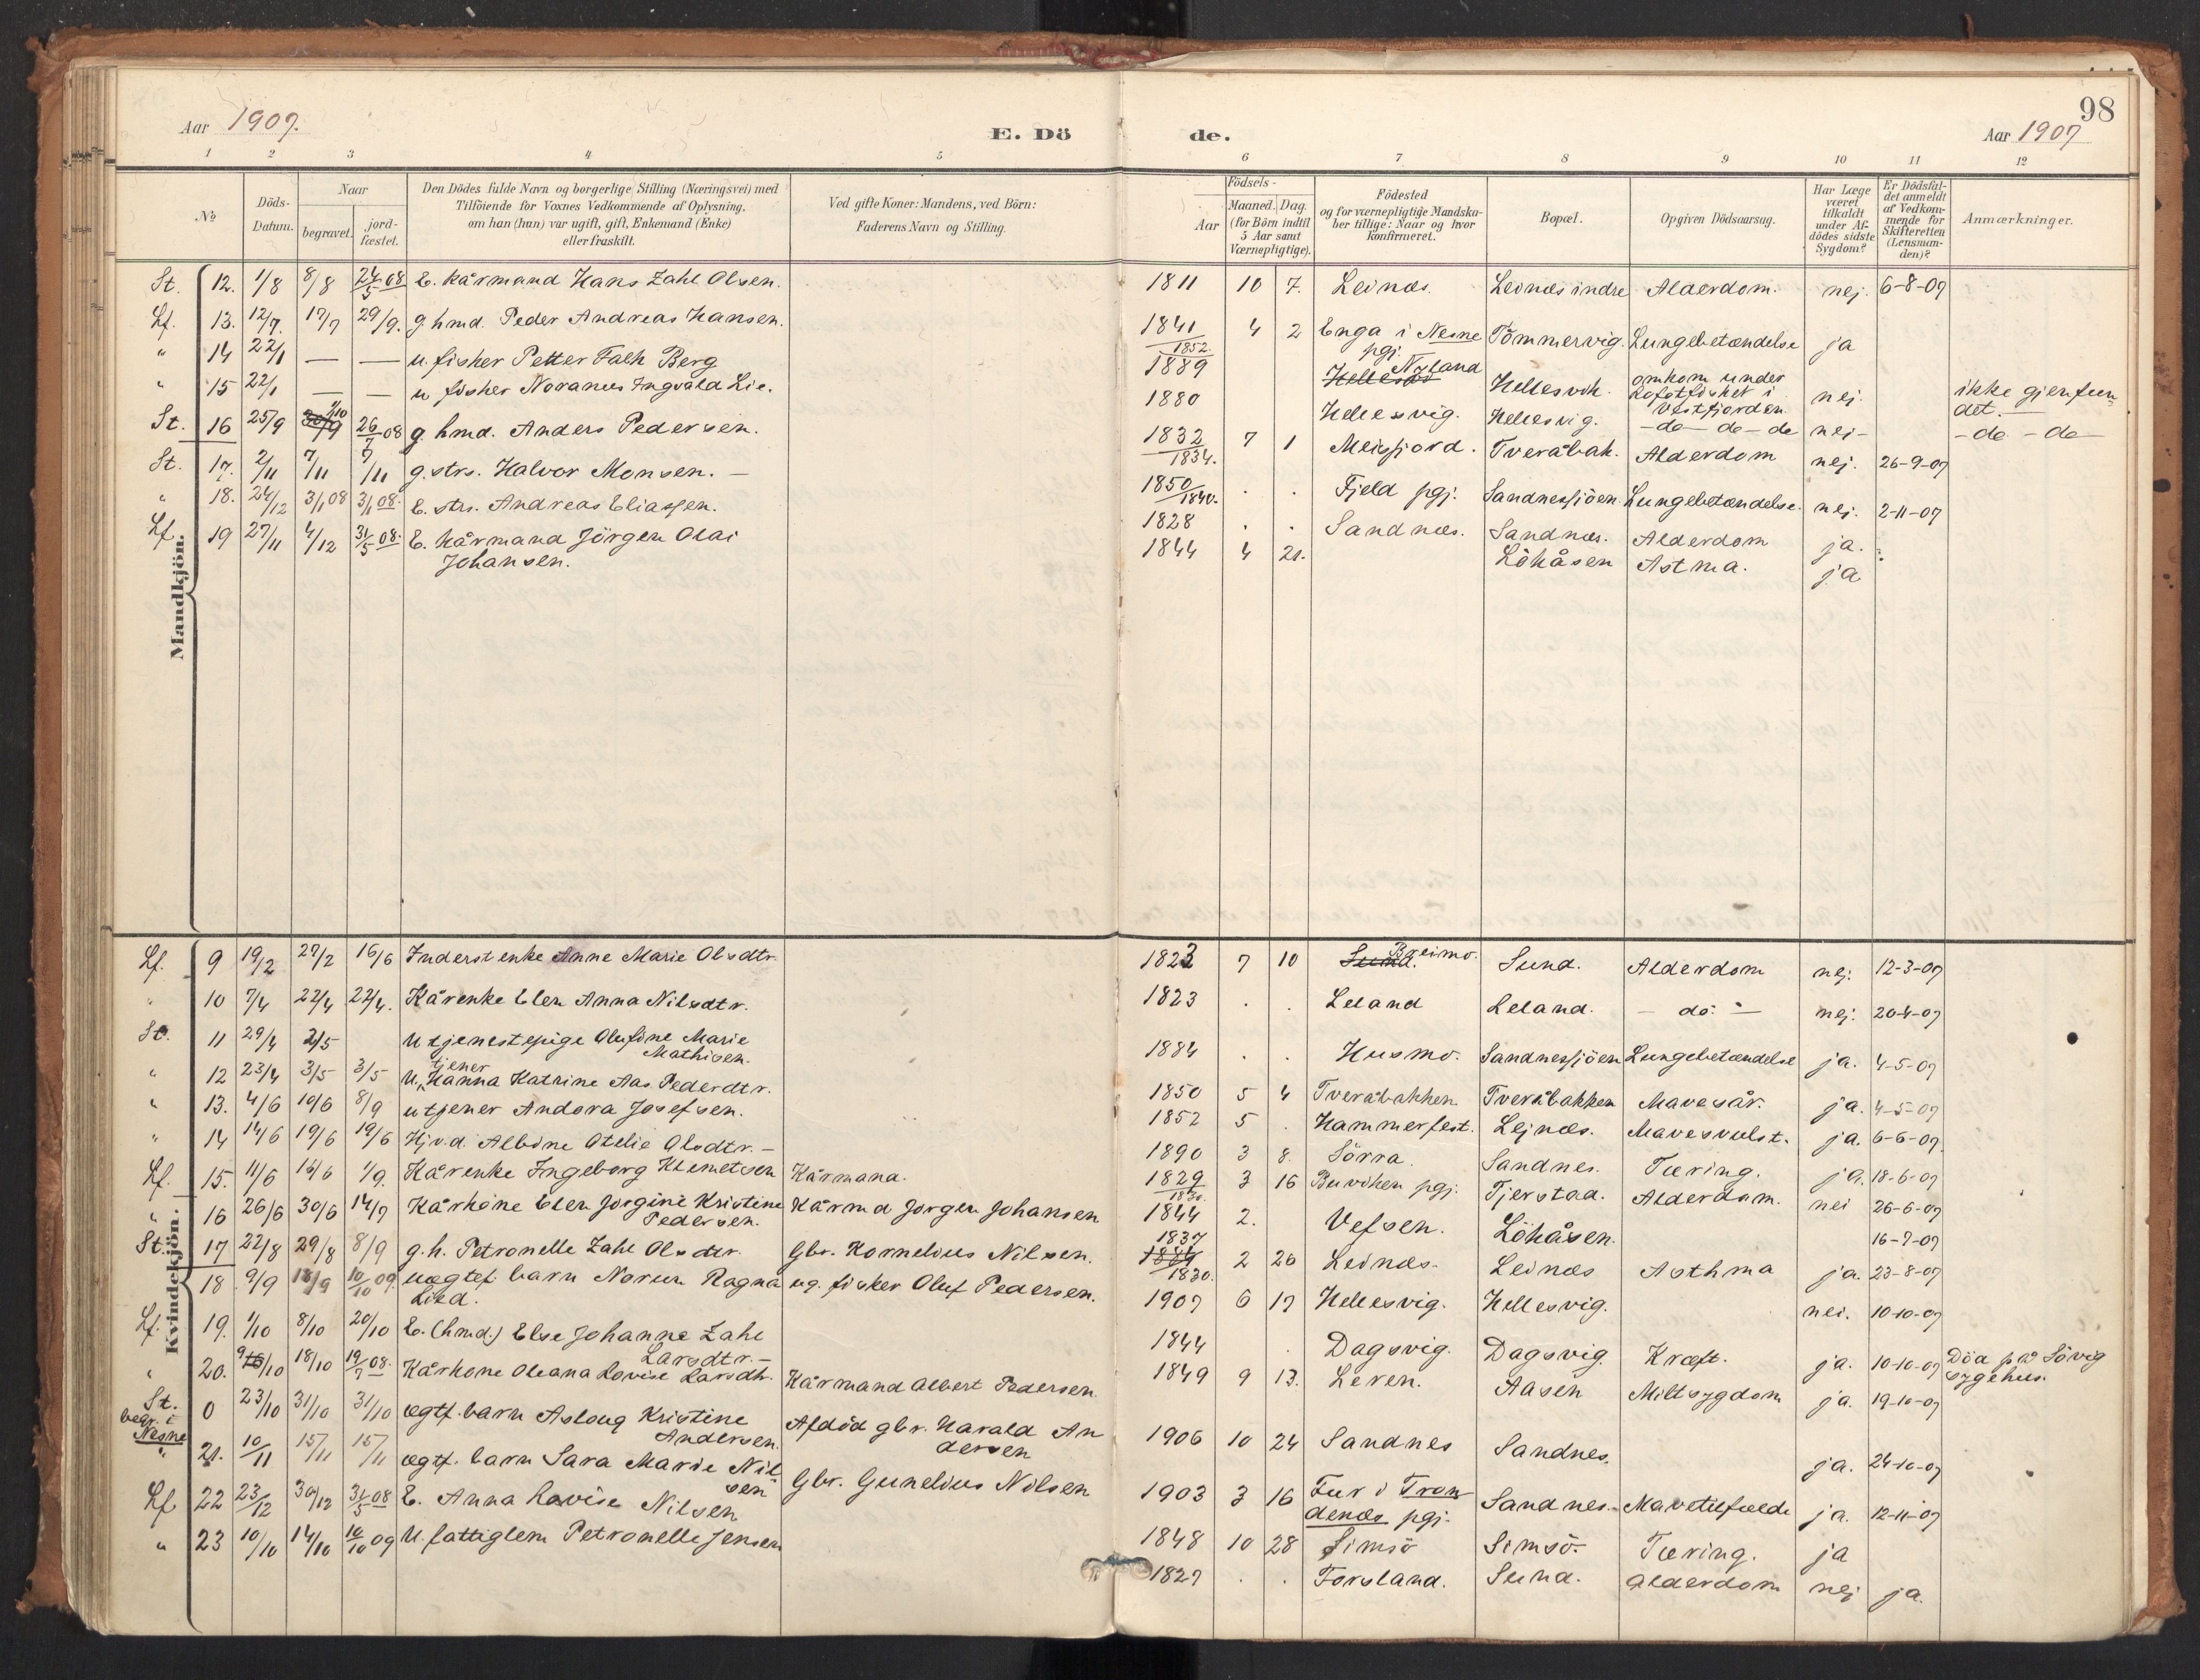 98
Aar 1907.
E. Dö de.
Aar 1907
1 2 3 4 5 6 7 8 9 10 11 12
№
Döds-Datum.
Naar
begravet.
jord-fæstet.
Den Dödes fulde Navn og borgerlige Stilling (Næringsvei) med
Tilföiende for Voxnes Vedkommende af Oplysning,
om han (hun) var ugift, gift, Enkemand (Enke)
eller fraskilt.
Ved gifte Koner: Mandens, ved Börn:
Faderens Navn og Stilling.
Födsels-
Aar
Maaned. Dag.
(for Börn indtil
5 Aar samt
Værnepligtige).
Födested
og for værnepligtige Mandska-
ber tillige: Naar og hvor
konfirmeret.
Bopæl.
Opgiven Dödsaarsag.
Har Læge
været
tilkaldt
under Af-
dödes sidste
Sygdom?
Er Dödsfal-
det anmeldt
af Vedkom-
mende for
Skifteretten
(Lensman-
den)?
Anmærkninger.
Mandkjön.
St. 12. 1/8 8/8 24/5 08 E. kårmand Hans Zahl Olsen. 1811 10 7. Leinæs. Leinæs indre Alderdom. nej. 6-8-07
Lf. 13. 12/7. 17/7 29/9. g hmd. Peder Andreas Hansen. 1841 1852. 4 2 Enga i Nesne pgj. Tömmervig. Lungebetændelse ja
" 14 22/1 — — u. fisker Petter Falk Berg 1889 Nyland Hellesvik. omkom under Lofotfisket i Vestfjorden nej. ikke gjenfun
det. —
" 15 22/1 — — u fisker Noranus Ingvald Lie. 1880 Hellesvig. Hellesvig. - do - do - do nej - - do - do -
St. 16 25/9 1/10 26/7 08 g. hmd. Anders Pedersen. 1832 1834. 7 1 Meisfjord. Tveråbak. Alderdom nej. 26-9-07
St. 17. 2/11 7/11 7/11 g. strs. Halvor Monsen. — 1850 1840. . . Fjeld pgj. Sandnessjöen. Lungebetændelse. nej. 2-11-07
" 18. 24/12 3/1 08 3/1 08. E. strs. Andreas Eliassen. 1828 . . Sandnæs. Sandnæs. Alderdom ja.
Lf 19 27/11 4/12 31/5 08. E. kårmand Jörgen Olai
Johansen. 1844 4 21. Lökåsen Astma. ja
Kvindekjön.
Lf. 9 19/2 27/2 16/6 Inderst enke Anne Marie Olsdtr. 1823 7 10 Breimo. Sund. Alderdom nej. 12-3-07
" 10 7/4 22/4 22/4. Kårenke Elen Anna Nilsdtr. 1823 . . Leland Leland. — do: — nej. 20-4-07
St. 11 29/4 2/5 U tjenestepige Olufine Marie
Mathisen. 1884 . . Husmo. Sandnessjöen Lungebetændelse ja. 4-5-07
" 12 23/4 3/5 3/5 U. tjener Hanna Katrine Aas Pederdtr. 1850 5 4 Tveråbakken Tveråbakken Mavesår. ja. 4-5-07
" 13. 4/6 10/6 8/9 u tjener Andora Josefsen. 1852 5 . Hammerfest. Lejnæs. Mavesvulst. ja. 6-6-07.
" 14 14/6 19/6 19/6 Hjv.d. Albine Otelie Olsdtr. — 1890 3 8. Sörra. Sandnes. Tæring. ja. 18-6-07
Lf. 15. 11/6 16/6 1/9. Kårenke Ingeborg Klemetsen Kårmand. 1829 1830. 3 16 Buviken pgj. Tjerstad. Alderdom. nei 26-6-07
" 16 26/6 30/6 14/7 Kårkone Elen Jorgine Kristine
Pedersen. Kårmd Jorgen Johansen 1844 2. Vefsen. Lökåsen. 16-7-07
St. 17 22/8 29/8 8/9 g.h. Petronelle Zahl Olsdtr. Gbr. Kornelius Nilsen. 1837 1830. 2 26 Leinæs. Leinæs Asthma ja. 23-8-07
18 9/9 15/9 10/10 09. uægtef. barn Norun Ragna
Lied. ug. fisker Oluf Pedersen. 1907 6 17 Hellesvig. Hellesvig. nei. 10-10-07
Lf. 19. 1/10 8/10 20/10 E. (hmd.) Else Johanne Zahl
Larsdtr. — 1844 . Dagsvig. Dagsvig. Kræft. ja. 10-10-07
" 20. 9/10 18/10 19/7 08. Kårkone Oleana Lovise Larsdtr. Kårmand Albert Pedersen. 1849 9 13. Leren. Aasen Miltsygdom ja. 19-10-07 Död på Sövig
sygehus.
St.
begr. i
Nesne 0 23/10 31/10 31/10 ægtf. barn Aslaug Kristine
Andersen. Afdöd gbr. Harald An
dersen 1906 10 24 Sandnes Sandnes. ja. 24-10-07
" 21. 10/11 15/11 15/11 ægtf. barn Sara Marie Nil
sen Gbr. Gunelius Nilsen 1903 3 16 Fur i Tron
denæs pgj. Sandnes. Mavetilfælde ja. 12-11-07
Lf 22 23/12 30/12 31/5 08 E. Anna Lovise Nilsen 1848 10 28 Simsö Simsö. Tæring. ja
" 23 10/10 14/10 10/10 09 U. fattiglem Petronelle Jensen 1827 . . Forsland. Sund. Alderdom nej ja.